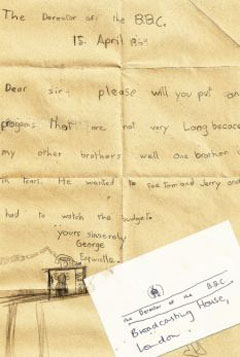 The Derector of: the B.B.C.
15. April 19
Dear sir, please will you put on
programs That are not very Long because
my other brothers well one brother
in tears. He wanted to see Tom and Jerry and
had to watch the budget.
yours sincerely
George
Esquille.
the Derector of the B.B.C.
Broadcasting House,
London.